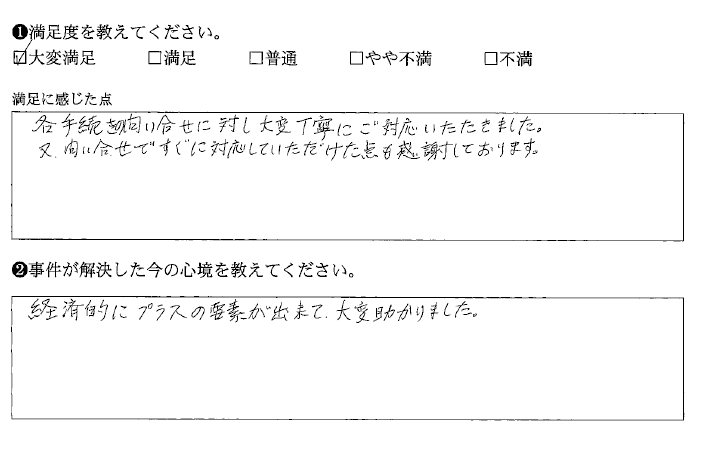 ❶満足度を教えてください。
☑大変満足 □満足 □普通 □やや不満 □不満
満足に感じた点
各手続き問い合せに対し大変丁寧にご対応いただきました。
又、問い合せですぐに対応していただけた点も感謝しております。
❷事件が解決した今の心境を教えてください。
経済的にプラスの要素が出来て、大変助かりました。